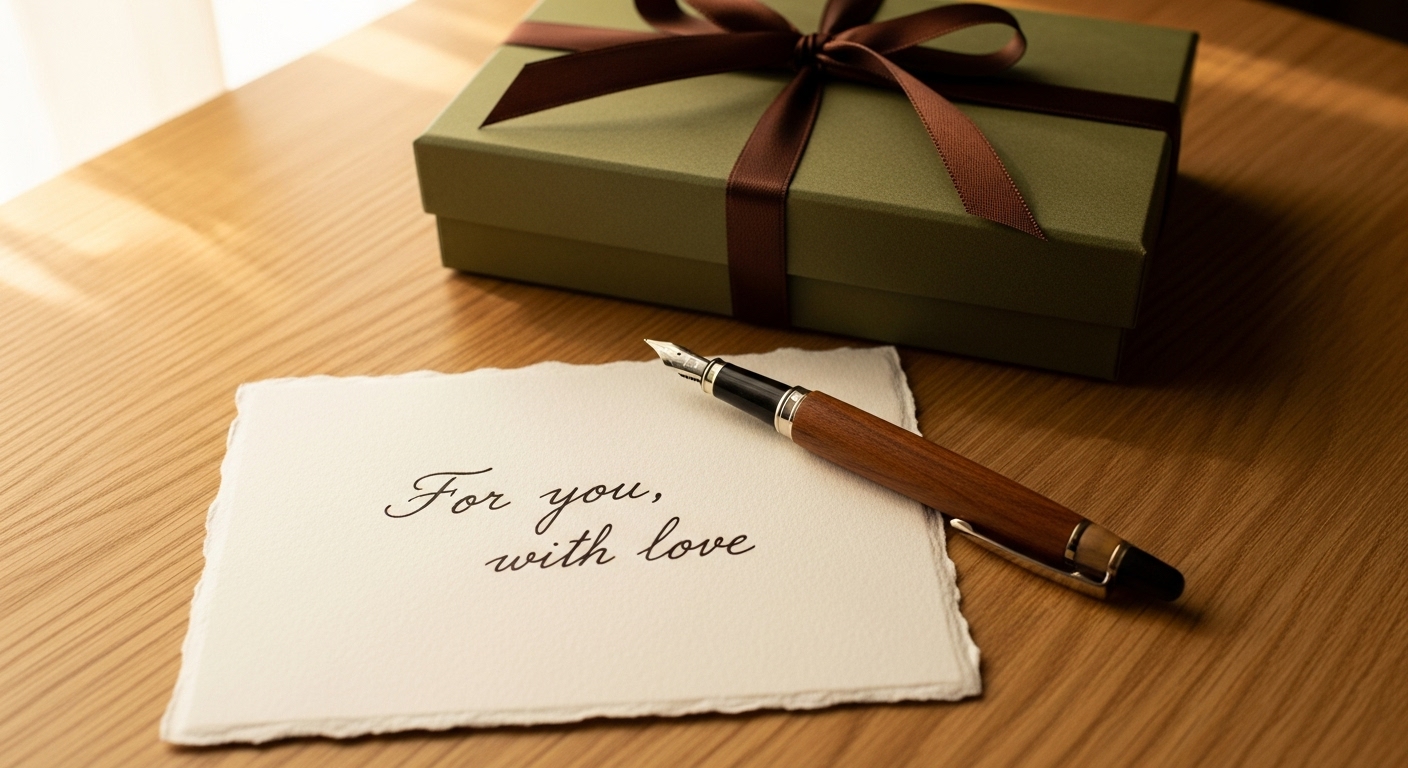 For you,
with love